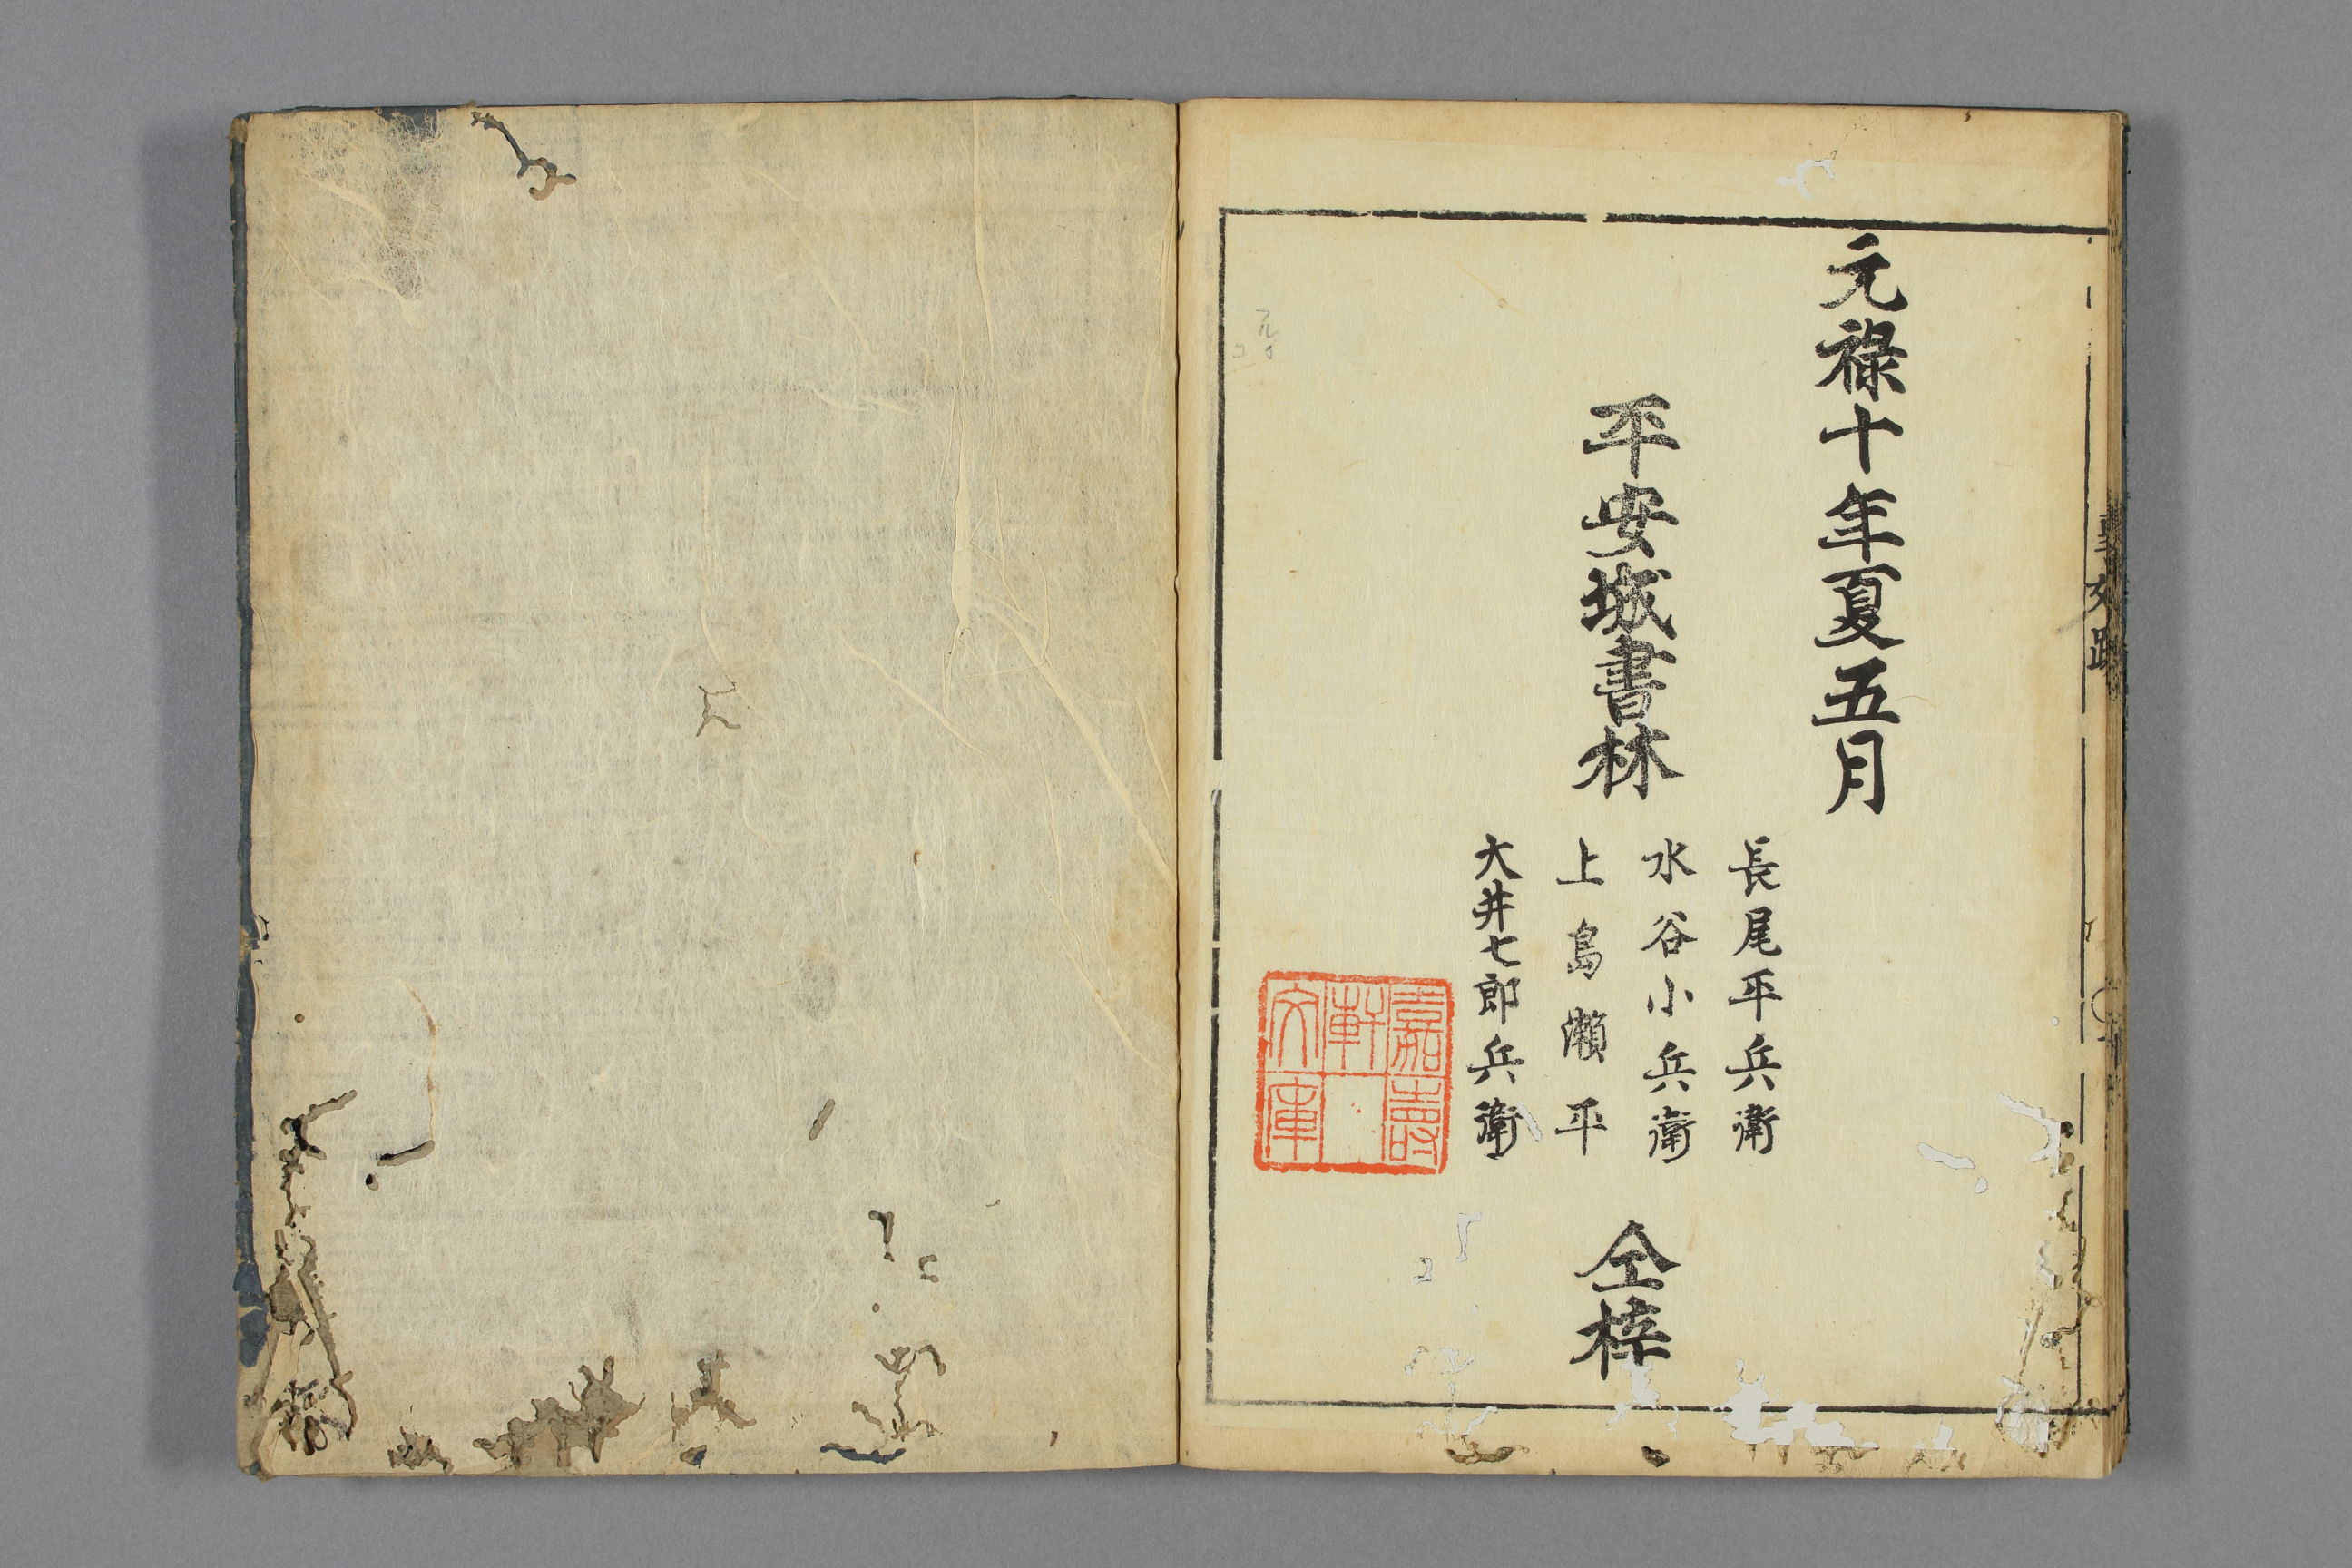 元禄十年夏五月
平安城書林
長尾平兵衛
水谷小兵衛
上島瀬平
大井七郎兵衛
仝梓
嘉壽
軒
文庫